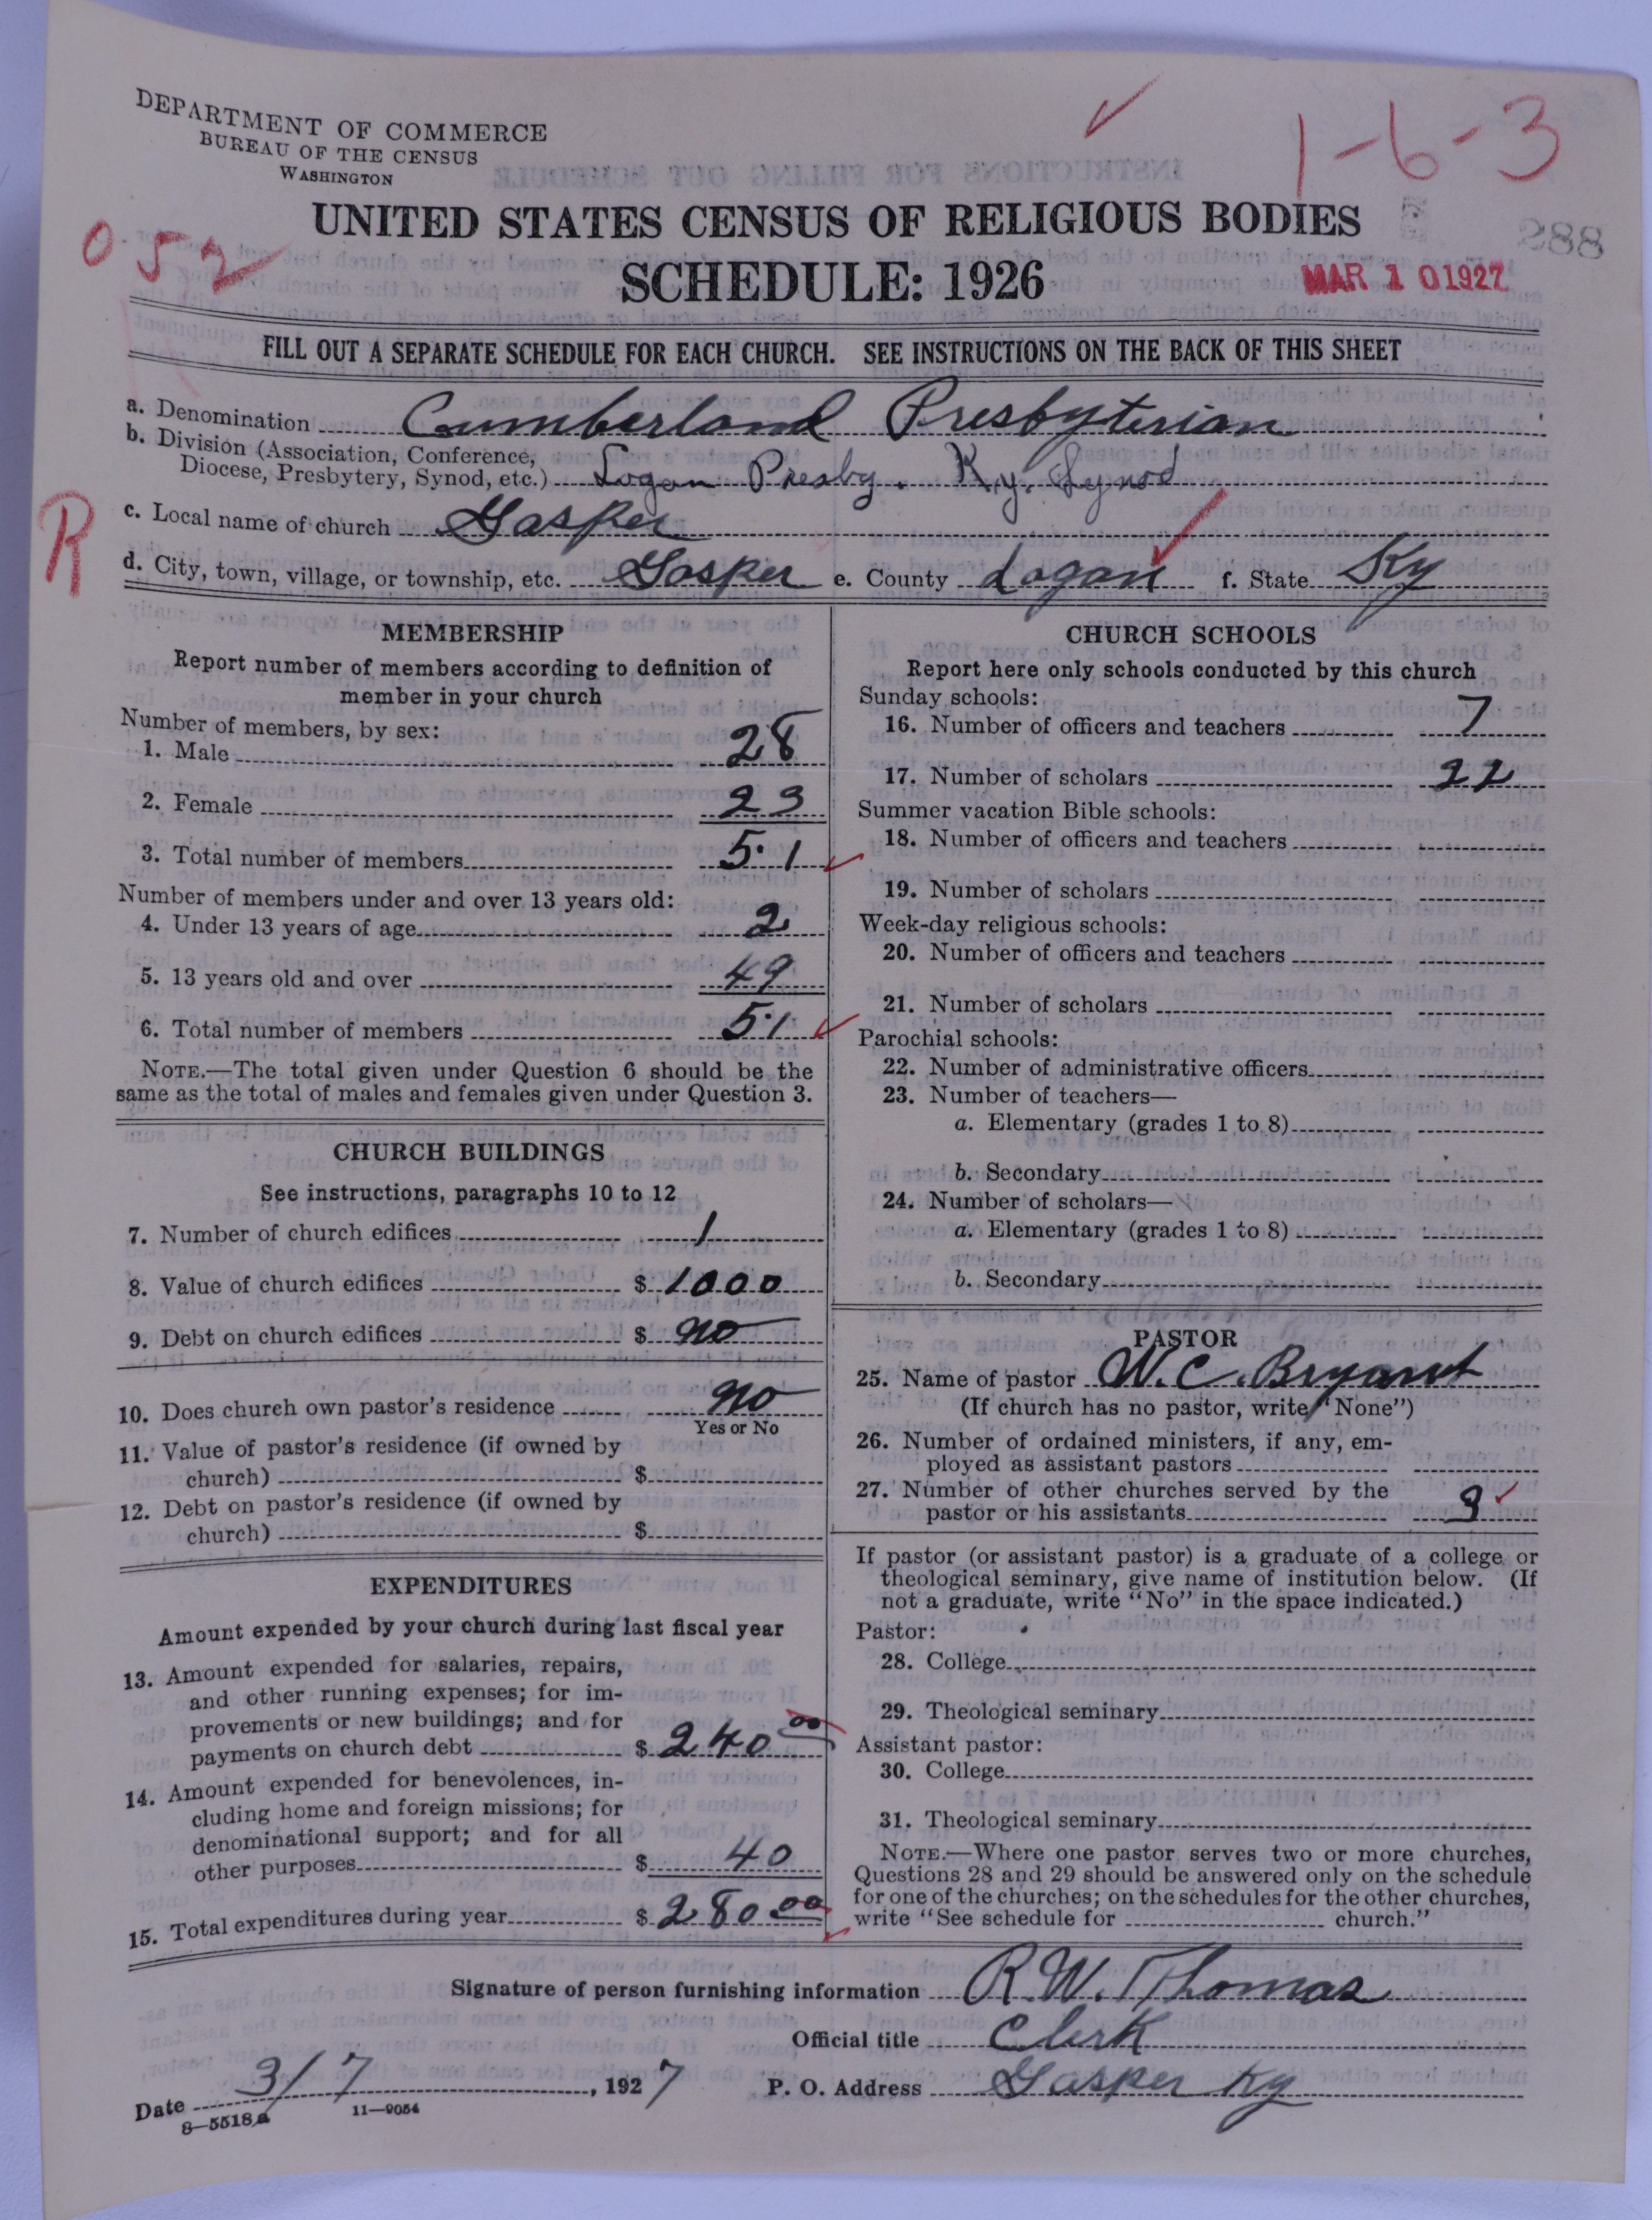 DEPARTMENT OF COMMERCE
BUREAU OF THE CENSUS
WASHINGTON
1-6-3
288
052
UNITED STATES CENSUS OF RELIGIOUS BODIES
SCHEDULE: 1926
MAR 10 1927
FILL OUT A SEPARATE SCHEDULE FOR EACH CHURCH. SEE INSTRUCTIONS ON THE BACK OF THIS SHEET
a. Denomination Cumberland Presbyterian
b. Division (Association, Conference,
Diocese, Presbytery, Synod, etc.) Logan Presby. Ky. Synod
R
c. Local name of church Gasper
d. City, town, village, or township, etc. Gasper e. County Logan f. State Ky
MEMBERSHIP
Report number of members according to definition of
member in your church
Number of members, by sex:
1. Male 28
2. Female 23
3. Total number of members 51
Number of members under and over 13 years old:
4. Under 13 years of age 2
5. 13 years old and over 49
6. Total number of members 51
NOTE.—The total given under Question 6 should be the
same as the total of males and females given under Question 3.
CHURCH BUILDINGS
See instructions, paragraphs 10 to 12
7. Number of church edifices 1
8. Value of church edifices $ 1000
9. Debt on church edifices $ no
10. Does church own pastor's residence no
Yes or No
11. Value of pastor's residence (if owned by
church) $
12. Debt on pastor's residence (if owned by
church) $
EXPENDITURES
Amount expended by your church during last fiscal year
13. Amount expended for salaries, repairs,
and other running expenses; for im-
provements or new buildings; and for
payments on church debt $ 240 00
14. Amount expended for benevolences, in-
cluding home and foreign missions; for
denominational support; and for all
other purposes $ 40
15. Total expenditures during year $ 280 00
CHURCH SCHOOLS
Report here only schools conducted by this church
Sunday schools:
16. Number of officers and teachers 7
17. Number of scholars 22
Summer vacation Bible schools:
18. Number of officers and teachers
19. Number of scholars
Week-day religious schools:
20. Number of officers and teachers
21. Number of scholars
Parochial schools:
22. Number of administrative officers
23. Number of teachers—
a. Elementary (grades 1 to 8)
b. Secondary
24. Number of scholars—
a. Elementary (grades 1 to 8)
b. Secondary
PASTOR
25. Name of pastor W. C. Bryant
(If church has no pastor, write "None")
26. Number of ordained ministers, if any, em-
ployed as assistant pastors
27. Number of other churches served by the
pastor or his assistants 3
If pastor (or assistant pastor) is a graduate of a college or
theological seminary, give name of institution below. (If
not a graduate, write "No" in the space indicated.)
Pastor:
28. College
29. Theological seminary
Assistant pastor:
30. College
31. Theological seminary
NOTE.—Where one pastor serves two or more churches,
Questions 28 and 29 should be answered only on the schedule
for one of the churches; on the schedules for the other churches,
write "See schedule for church."
Signature of person furnishing information R.W. Thomas
Official title Clerk
Date 3/7, 1927 P. O. Address Gasper Ky
8—5518a 11—9054